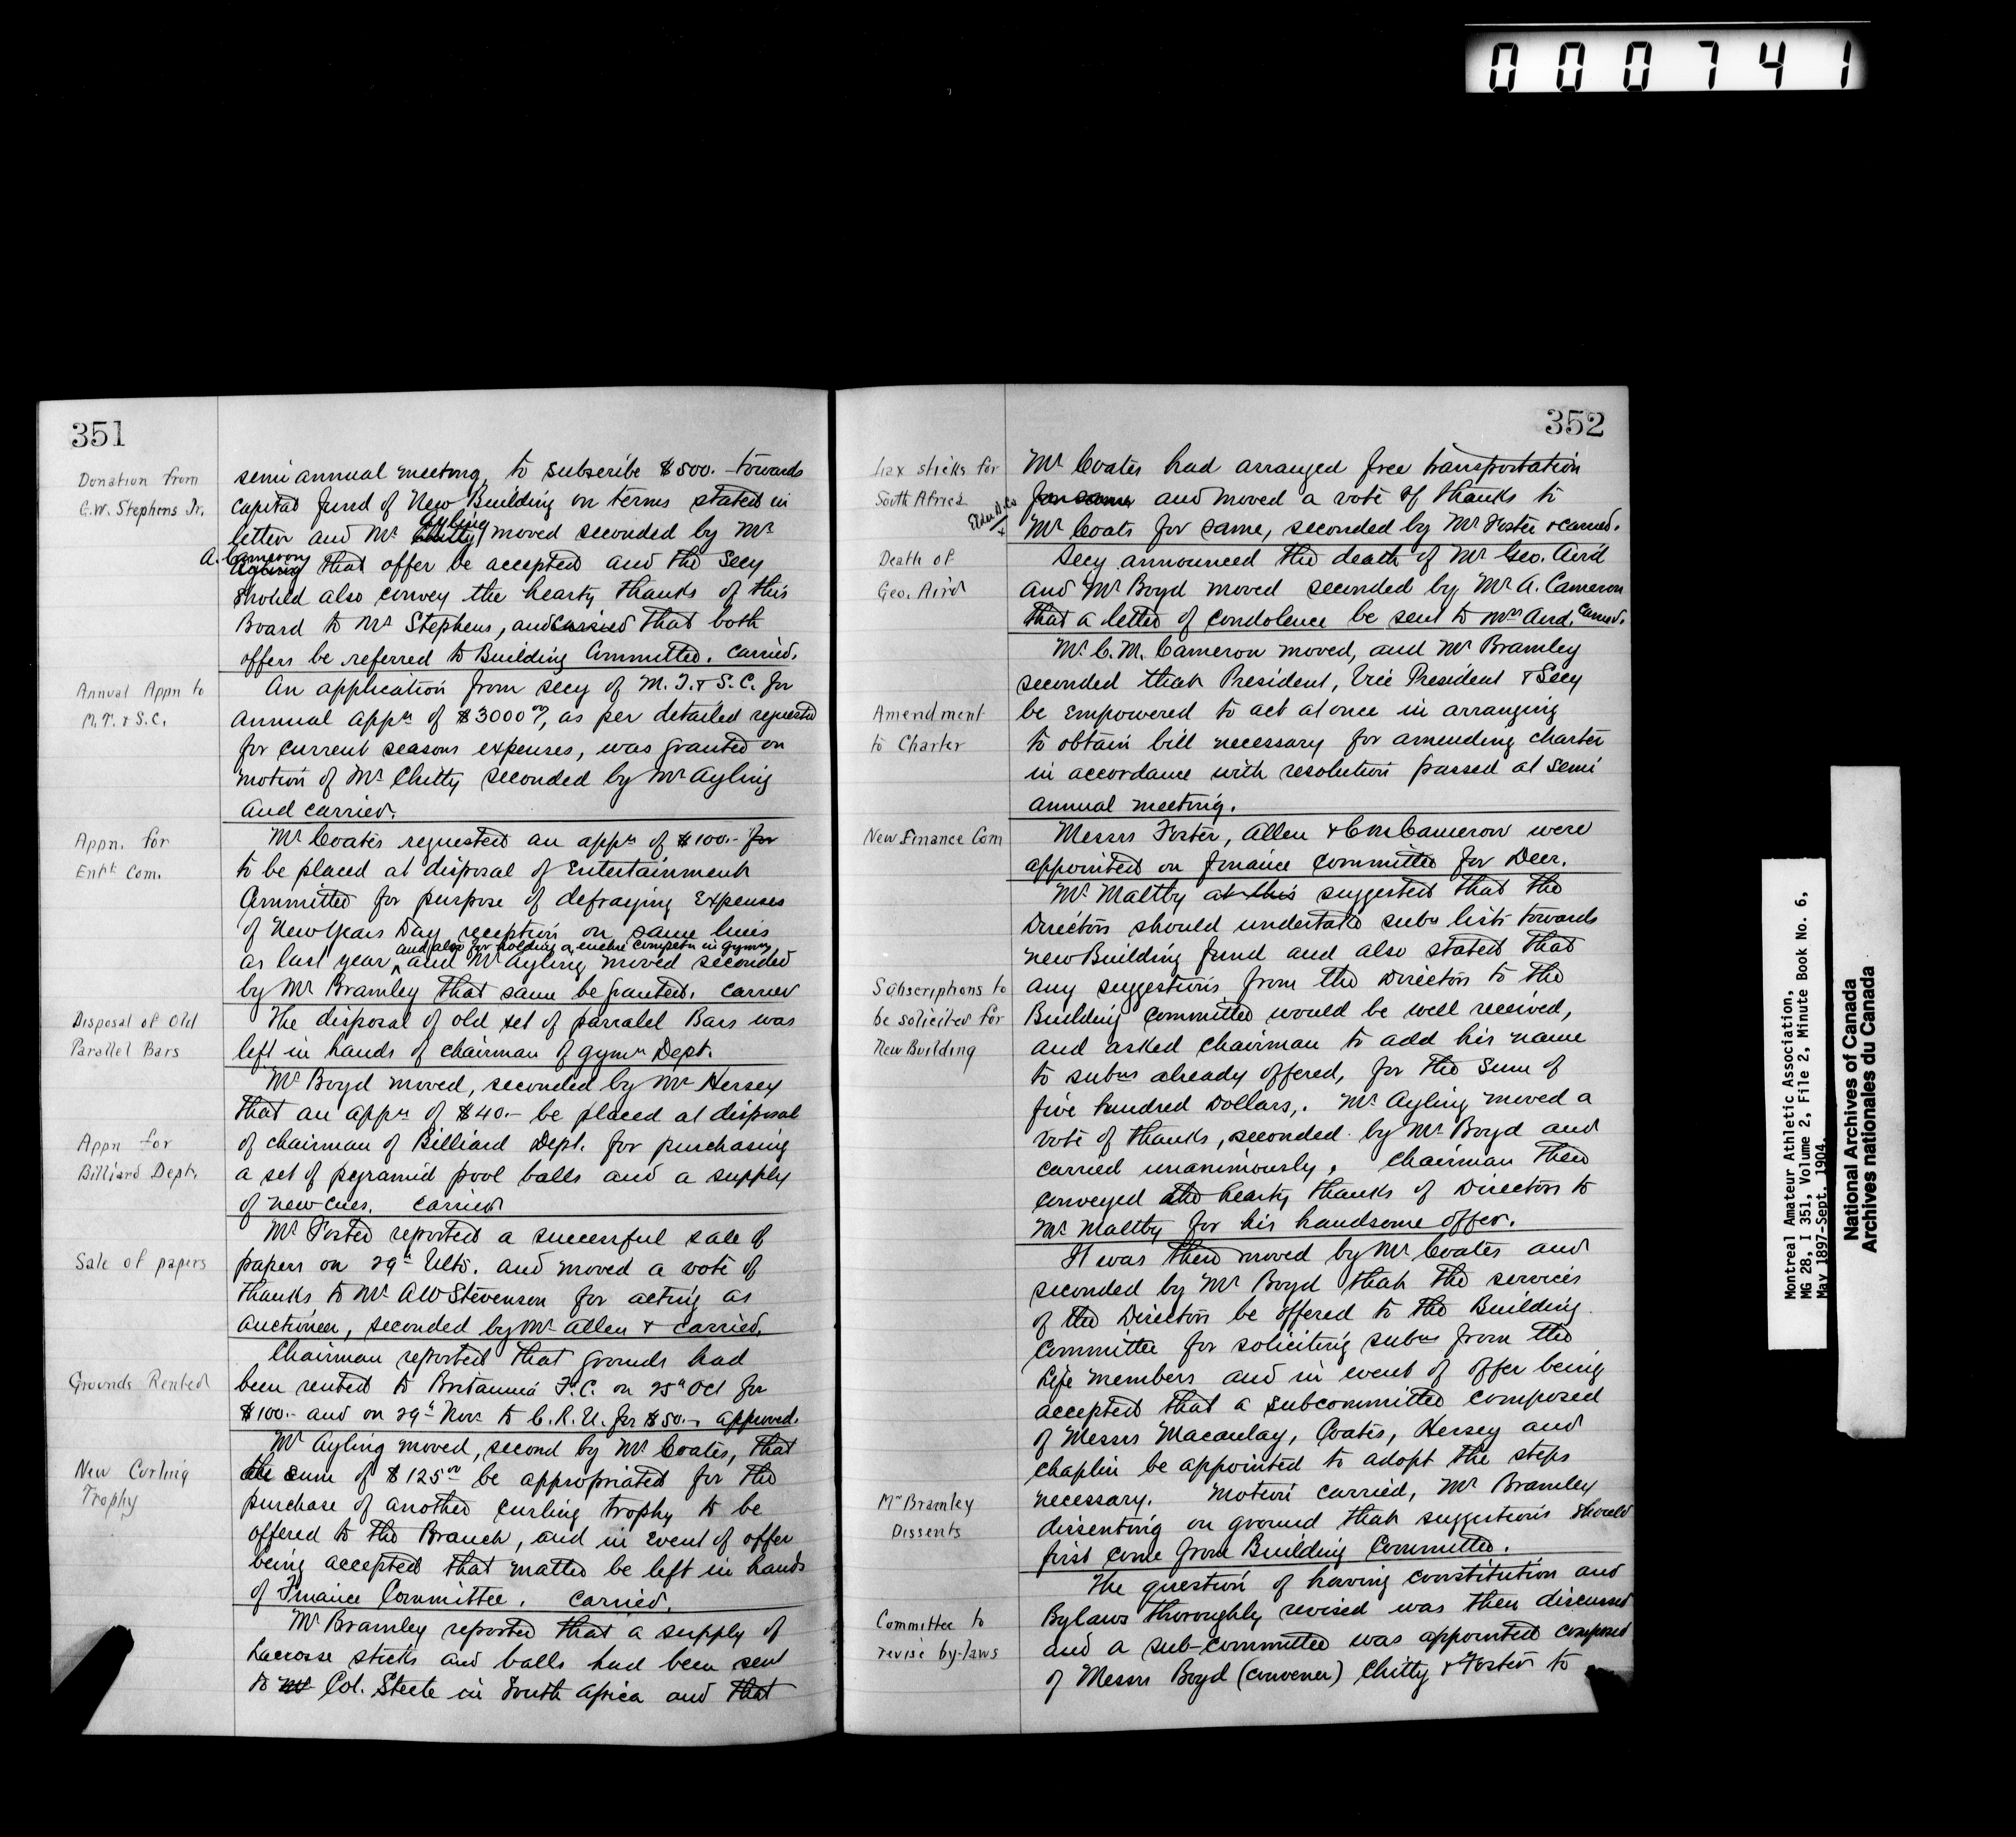 000741
351
Donation from
C.W. Stephens Jr.
semi annual meeting, to subscribe $500.- towards
capital fund of New Building on terms stated in
letter and Mr Chitty Ayling moved seconded by Mr
A. Cameron Ayling that offer be accepted and the Secy
should also convey the hearty thanks of this
Board to Mr Stephens, and carried that both
offers be referred to Building Committee. Carried.
Annual Appn to
M.T. & S.C.
An application from secy of M.T. & S.C. for
annual appn of $3000 00/, as per detailed requested
for current seasons expenses, was granted on
motion of Mr Chitty seconded by Mr Ayling
and carried.
Appn. for
Entt. Com.
Mr Coates requested an appn of $100.- for
to be placed at disposal of Entertainment
Committee for purpose of defraying Expenses
of New Years Day reception on same lines
and also for holding a euchre competn in gymn
as last year ^ and Mr Ayling moved seconded
by Mr Bramley that same be granted. Carried
Disposal of Old
Parallel Bars
The disposal of old set of parralel Bars was
left in hands of chairman of gymn Dept.
Mr Boyd moved, seconded by Mr Hersey
that an appn of $40.- be placed at disposal
Appn for
Billiard Dept.
of chairman of Billiard Dept. for purchasing
a set of pyramid pool balls and a supply
of new cues. Carried
Sale of papers
Mr Foster reported a successful sale of
papers on 29th Ulto. and moved a vote of
thanks to Mr A W Stevenson for acting as
auctioneer, seconded by Mr Allen & carried.
Grounds Rented
Chairman reported that grounds had
been rented to Britannia F.C. on 25th Oct for
$100.- and on 29th Nov. to C.R.U. for $50.-, approved.
New Curling
Trophy
Mr Ayling moved, second by Mr Coates, that
the sum of $125 00 be appropriated for the
purchase of another curling trophy to be
offered to the Branch, and in Event of offer
being accepted that matter be left in hands
of Finance Committee. Carried.
Mr Bramley reported that a supply of
Lacrosse sticks and balls had been sent
to Mr Col. Steele in South Africa and that
352
Lax sticks for
South Africa
Mr Coates had arranged free transportation
for same and moved a vote of thanks to
Mr Coats for same, seconded by Mr Foster & carried.
Death of
Geo. Aird
Secy announced the death of Mr Geo. Aird
and Mr Boyd moved seconded by Mr A. Cameron
that a letter of condolence be sent to Mrs Aird. Carried.
Mr C.M. Cameron moved, and Mr Bramley
seconded that President, Vice President & Secy
Amendment
to Charter
be Empowered to act at once in arranging
to obtain bill necessary for amending charter
in accordance with resolution passed at semi
annual meeting.
New Finance Com
Messrs Foster, Allen & C M Cameron were
appointed on finance committee for Decr.
Mr Maltby at this suggested that the
Directors should undertake subn lists towards
new Building fund and also stated that
Subscriptions to
be solicited for
New Building
any suggestions from the Directors to the
Building Committee would be well received,
and asked chairman to add his name
to subns already offered, for the sum of
five hundred Dollars,. Mr Ayling moved a
vote of thanks, seconded by Mr Boyd and
carried unanimously. Chairman then
conveyed the hearty thanks of Directors to
Mr Maltby for his handsome offer.
It was then moved by Mr Coates and
seconded by Mr Boyd that the services
of the Directors be offered to the Building
Committee for soliciting subns from the
Life members and in event of offer being
accepted that a subcommittee composed
of Messrs Macaulay, Coates, Hersey and
Chaplin be appointed to adopt the steps
Mr Bramley
Dissents
necessary. Motion carried, Mr Bramley
dissenting on ground that suggestions should
first come from Building Committee.
The question of having constitution and
Committee to
revise by-laws
Bylaws thoroughly revised was then discussed
and a sub-committee was appointed composed
of Messrs Boyd (convener) Chitty & Foster to
Montreal Amateur Athletic Association,
MG 28, I 351, Volume 2, File 2, Minute Book No. 6,
May 1897-Sept. 1904.
National Archives of Canada
Archives nationales du Canada